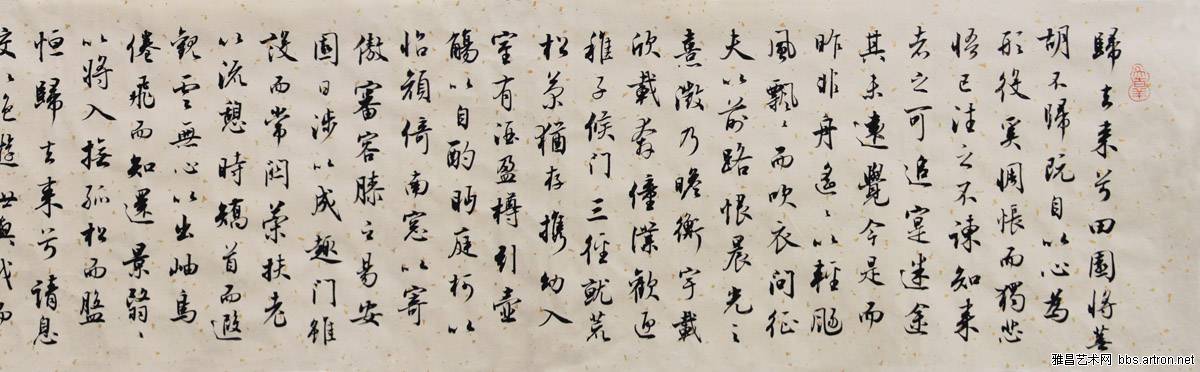 歸去来兮田園将蕪
胡不歸既自以心為
形役奚惆悵而獨悲
悟已往之不諫知来
者之可追寔迷途
其未遠覺今是而
昨非舟遙〻以輕颺
風飄〻而吹衣问征
夫以前路恨晨光之
熹微乃瞻衡宇載
欣載奔僮僕歡迎
稚子候门三徑就荒
松菊猶存携幼入
室有酒盈樽引壺
觴以自酌眄庭柯以
怡顔倚南窓以寄
傲審容膝之易安
園日涉以成趣门雖
設而常関策扶老
以流憩時矯首而遐
觀雲無心以出岫鳥
倦飛而知還景翳〻
以将入撫孤松而盤
恒歸去来兮請息
交以絶遊世與我而
雅昌艺术网 bbs.artron.net